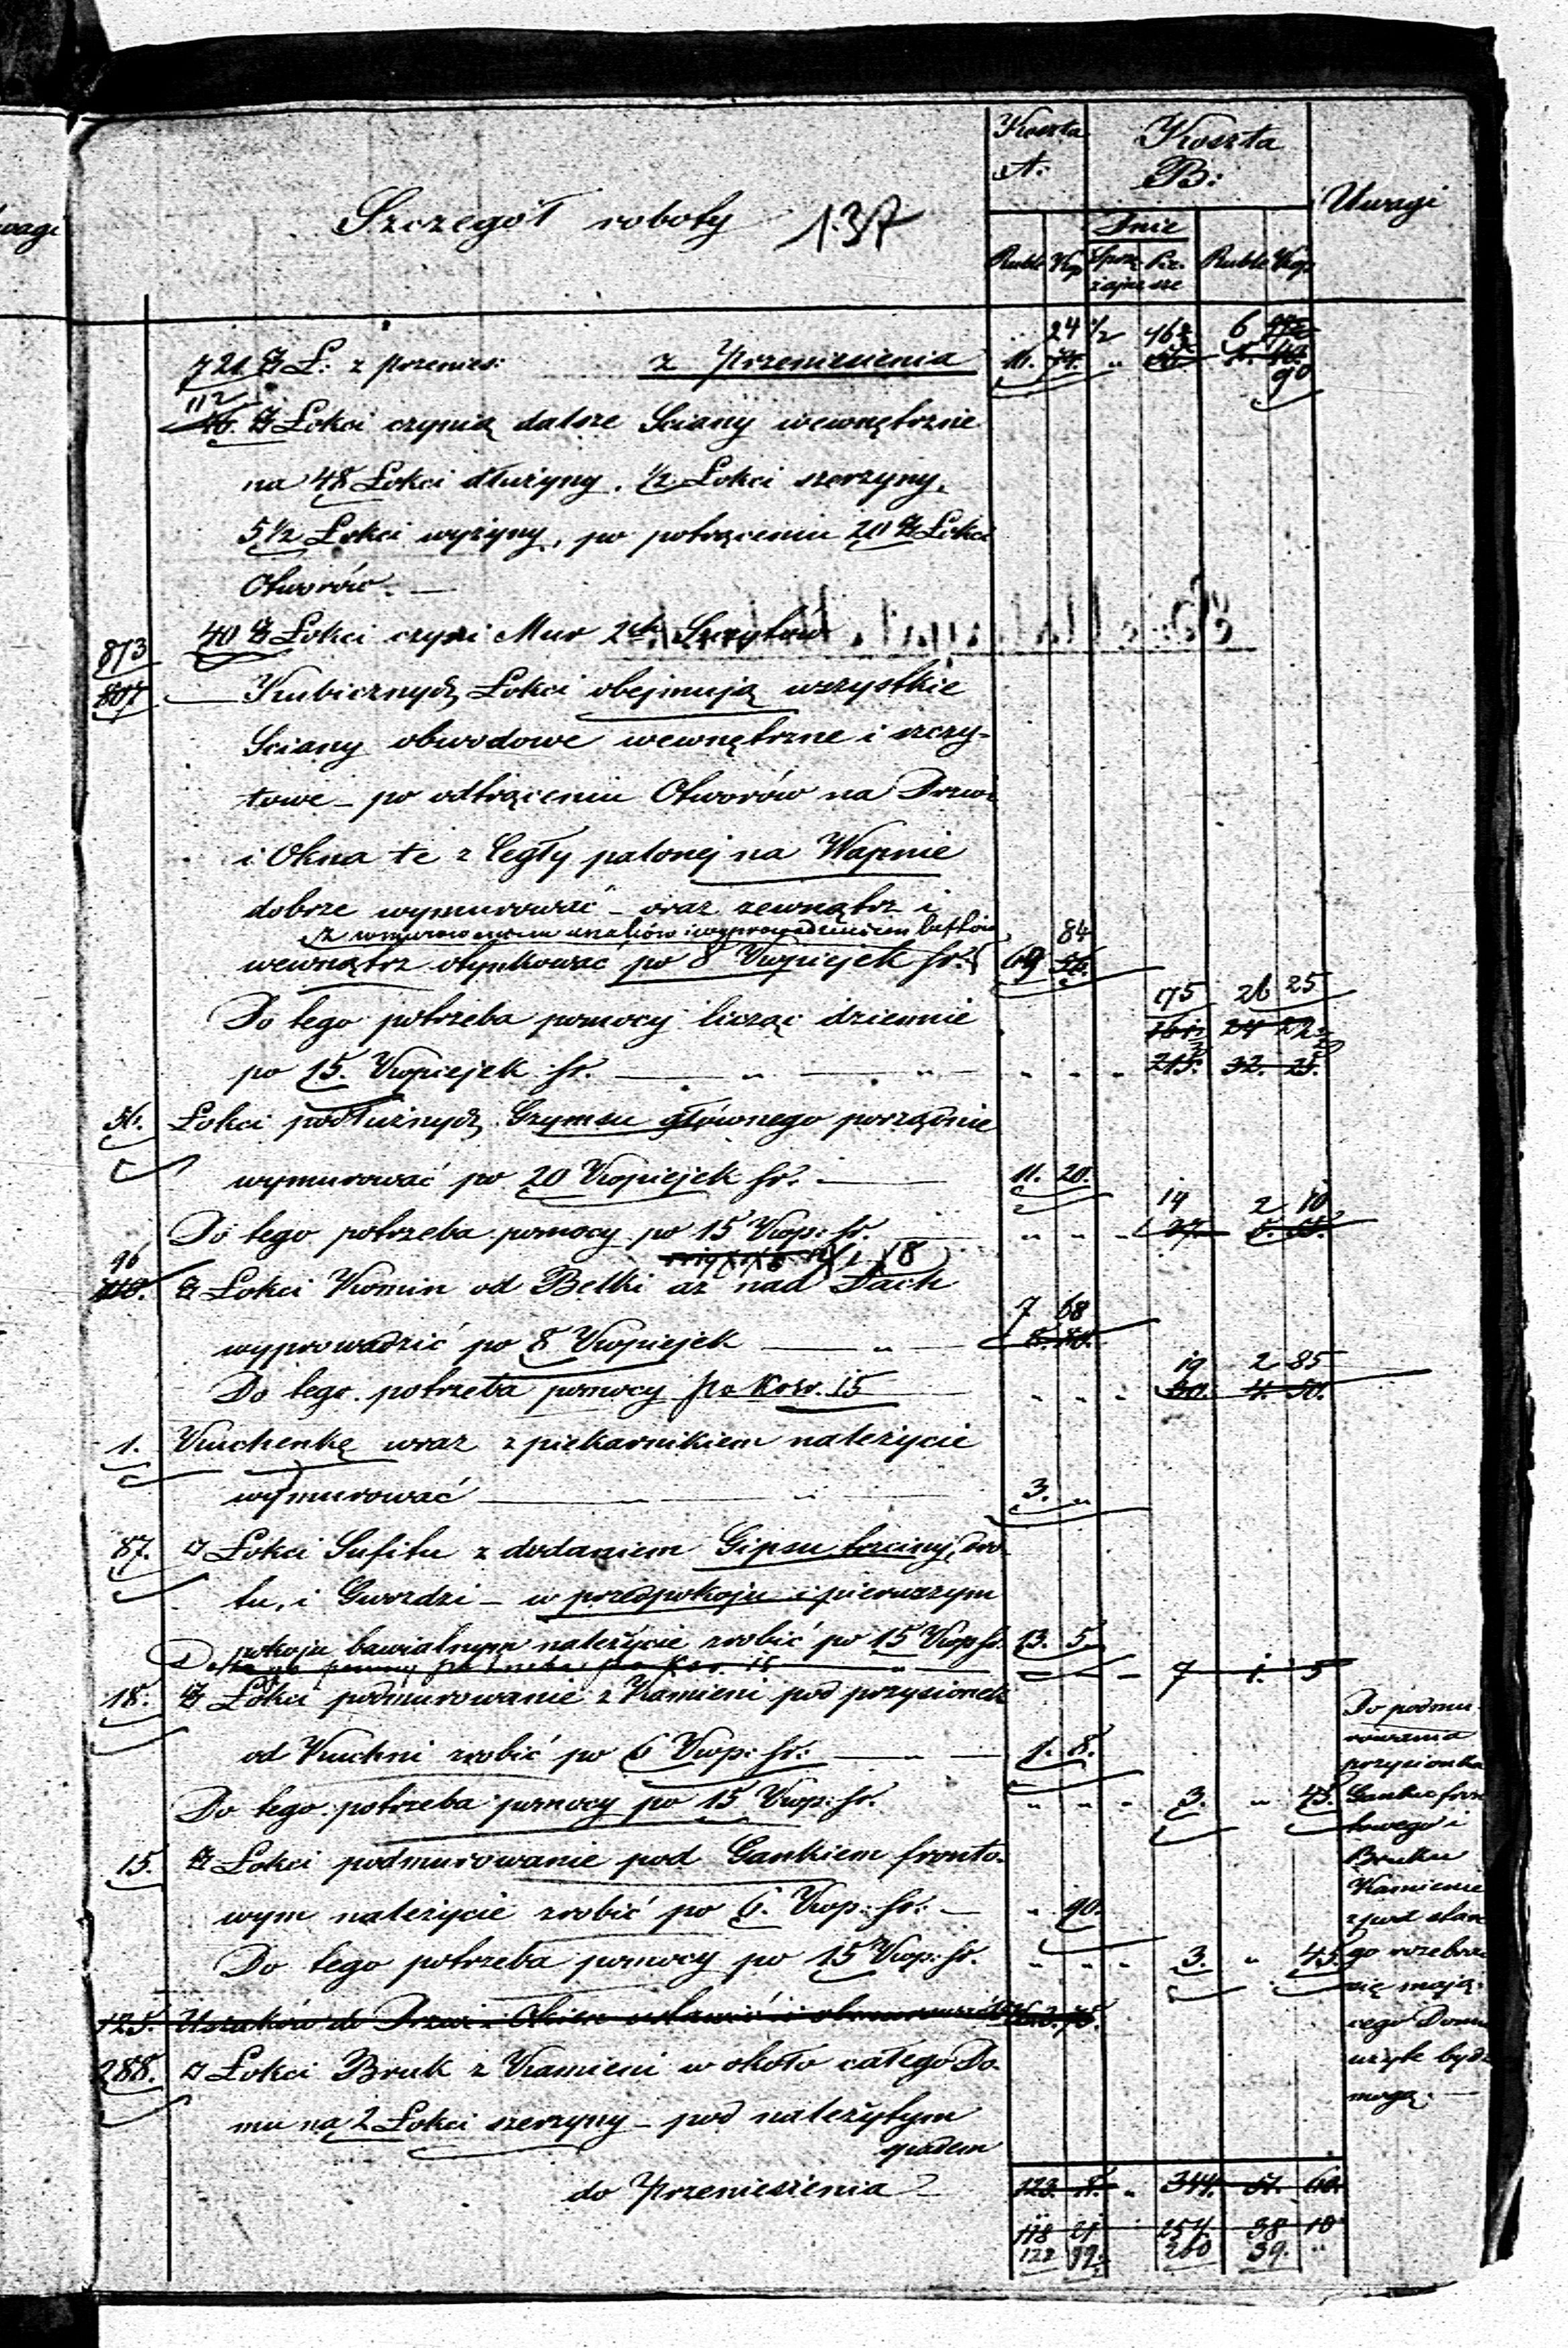 wagi
Szczegół roboty 137
Koszta A:
Koszta B:
Uwagi
Dnie
Ruble Kop Sprzężajne Piesze Ruble Kop
24 1/2 46 6
721 Ł: z przenies: z Przeniesienia 11. 90
112
Łokci czynią dalsze Sciany wewnętrzne
na 48 Łokci dłużyny, 1/2 Łokci szerzyny,
5 1/2 Łokci wyżyny, po potrąceniu 20 Łokci
Otworów. —
40 Łokci czyni Mur 2ch Szczytów
873
807 — Kubicznych Łokci obejmują wszystkie
Sciany obwodowe wewnętrzne i szczy-
towe – po odtrąceniu Otworów na Drzwi
i Okna te z Cegły palonej na Wapnie
dobrze wymurować – oraz zewnątrz i
z wmurowaniem uszaków i wyprowadzeniem 84
wewnątrz otynkować po 8 Kopiejek sr: 69 56.
175 26 25
Do tego potrzeba pomocy licząc dziennie 24 22
po 15. Kopiejek sr. — „ — „ 215. 32. 25.
56. Łokci podłużnych Gzymsu głównego porządnie
wymurować po 20 Kopiejek sr. — 11. 20.
14 2 10
Do tego potrzeba pomocy po 15 Kop: sr. 37. 5. 55.
96
110. Łokci Komin od Belki aż nad Dach
7 68
wyprowadzić po 8 Kopiejek — „ — 8. 80.
19 2 85
Do tego potrzeba pomocy po Kop. 15 30. 4. 50.
1. Kuchenkę wraz z piekarnikiem należycie
wymurować — 3. „
87. Łokci Sufitu z dodaniem Gipsu trzciny, dro-
tu, i Gwozdzi – w przedpokoju i pierwszym
pokoju bawialnym należycie zrobić po 15 Kop sr. 13. 5.
7 1. 5
18. Łokci podmurowanie z Kamieni pod przysionek
od Kuchni zrobić po 6 Kop: sr: — „ — 1. 8.
Do tego potrzeba pomocy po 15 Kop: sr. 3. „ 45.
15. Łokci podmurowanie pod Gankiem fronto-
wym należycie zrobić po 6. Kop: sr: — „ 90.
Do tego potrzeba pomocy po 15 Kop: sr. 3. „ 45.
125. Uszaków do Drzwi i Okien ustawić i obmurować
288. Łokci Bruk z Kamieni w około całego Do-
mu na 2 Łokci szerzyny – pod należytym
spadem
do Przeniesienia 123. 8. „ 344. 51. 60.
118 21 254. 38 10
122 99. 260 39. „
Do podmu-
rowania
przysionka
Ganku fron-
towego i
Bruku
Kamienie
z pod stare-
go rozebrać
się mają-
cego Domu
użyte bydź
mogą. —